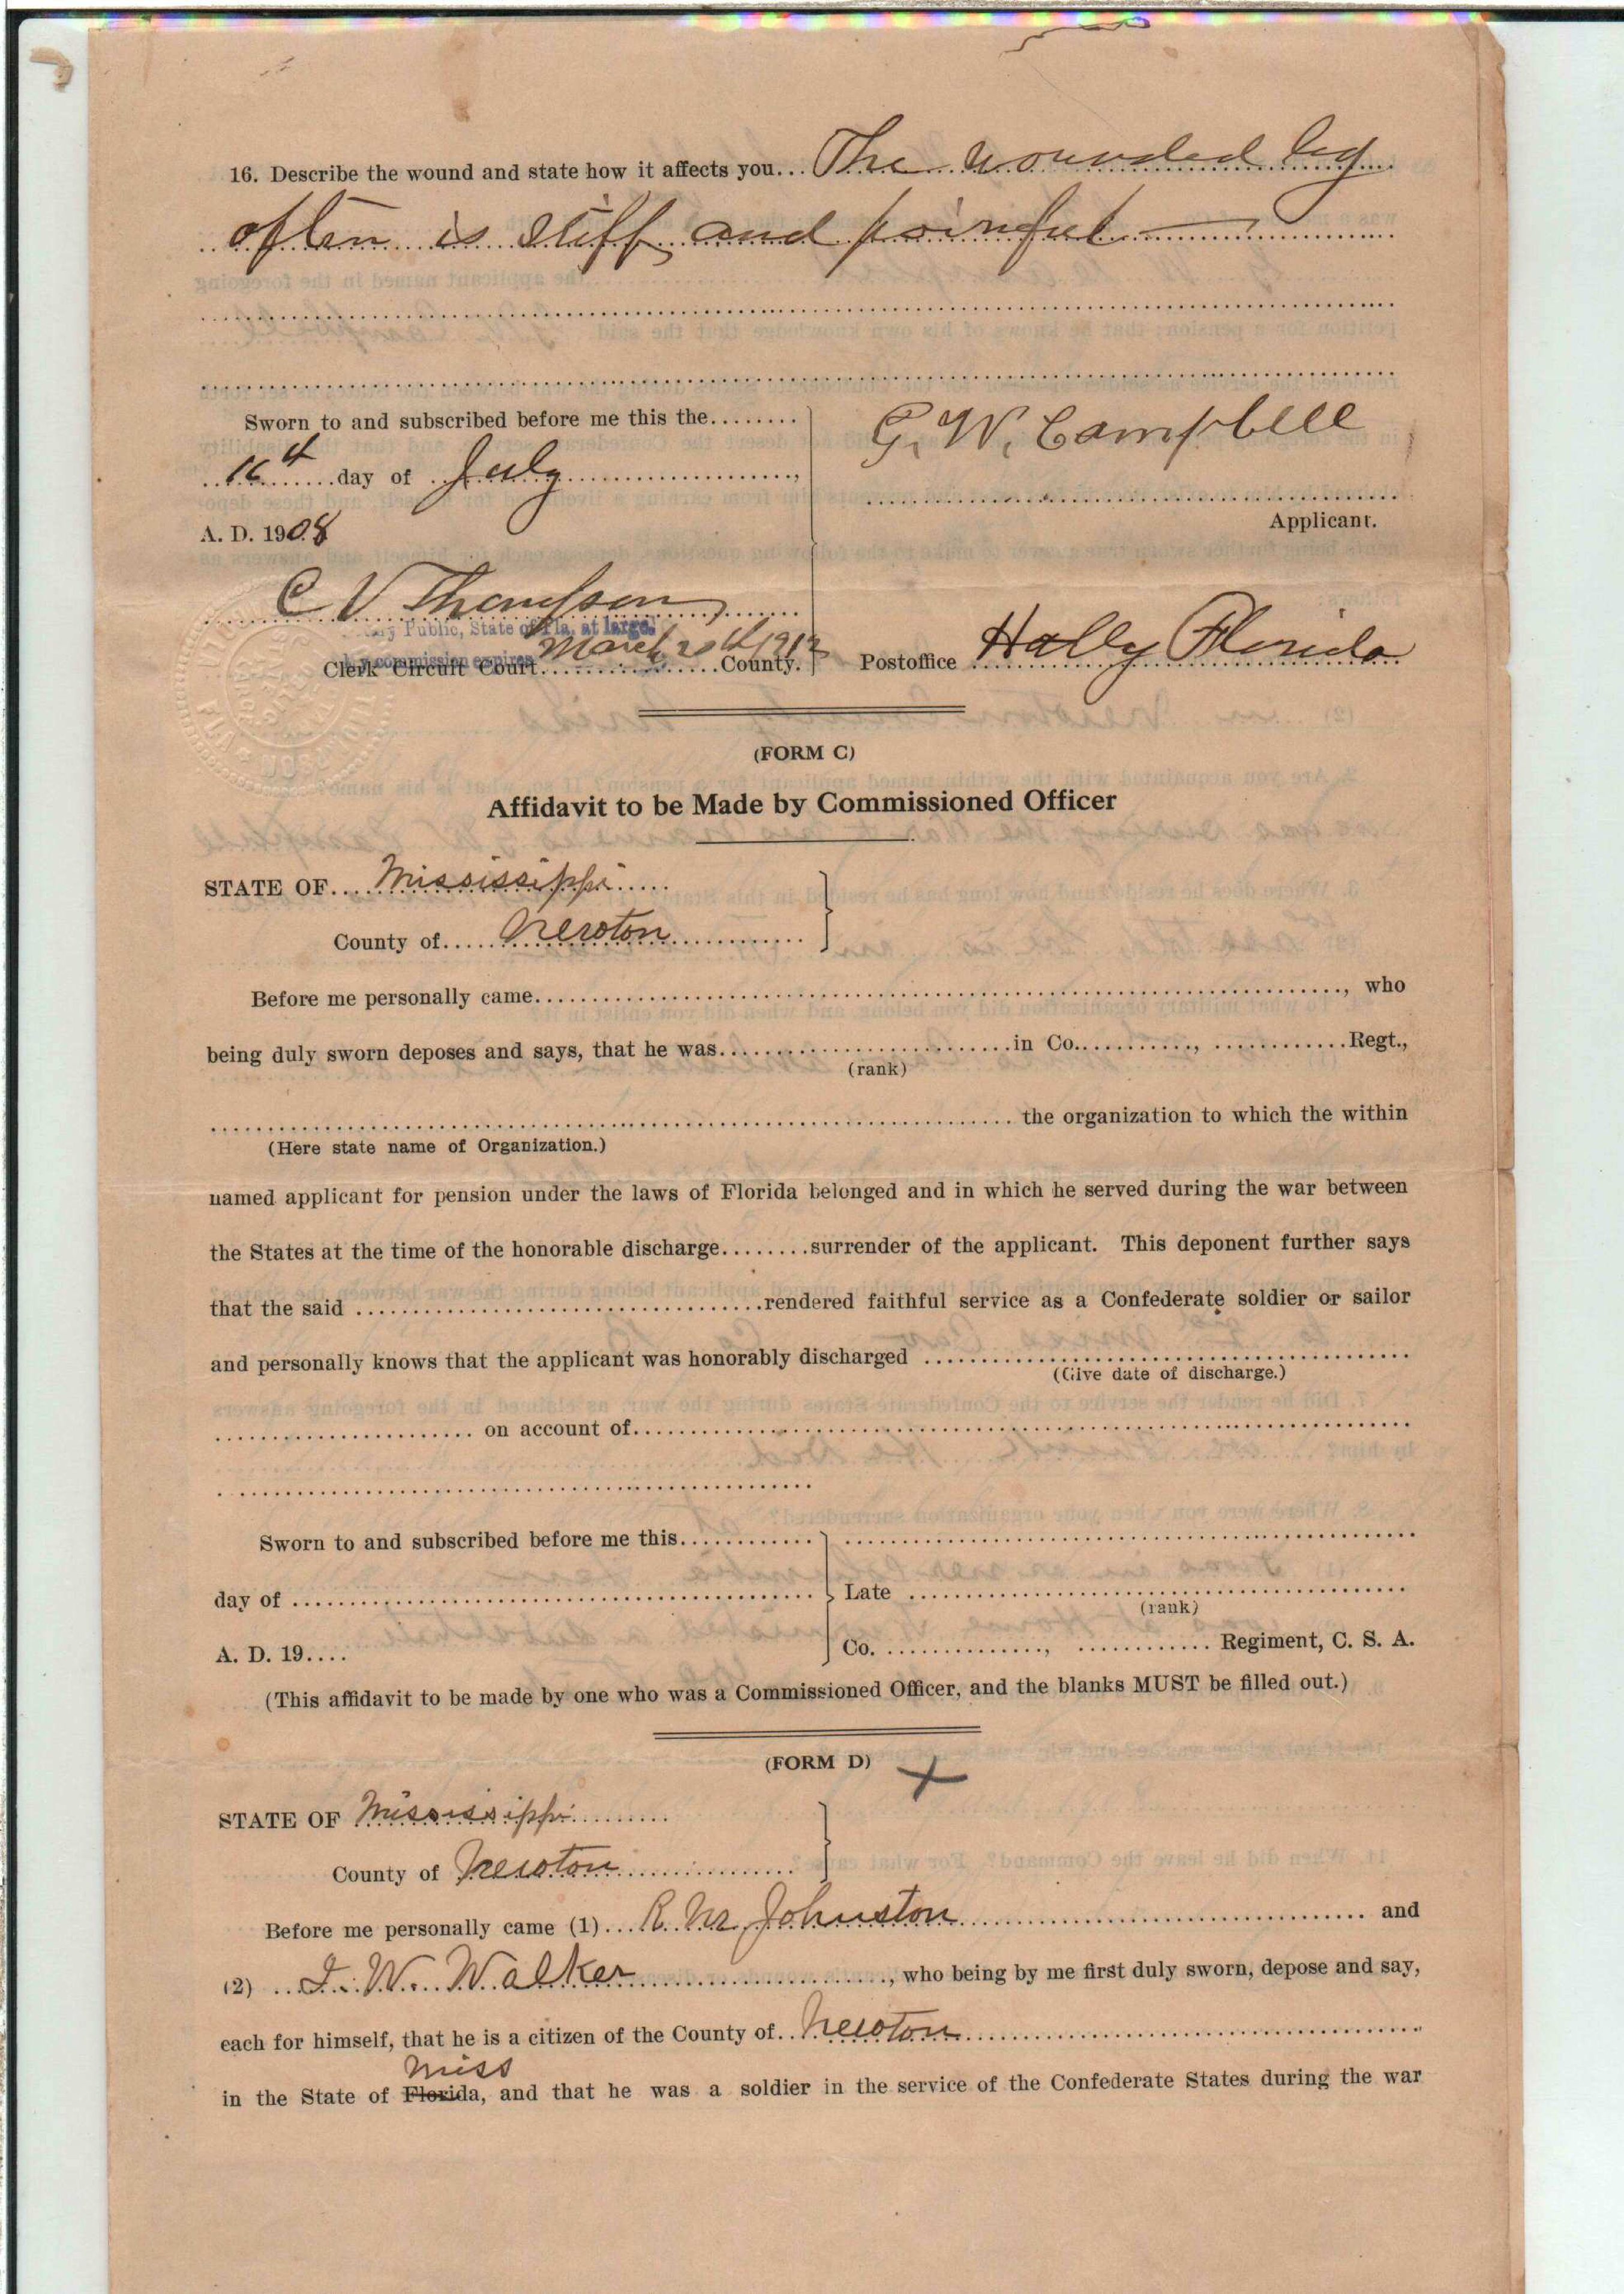 16. Describe the wound and state how it affects you... The wounded leg
often is stiff and painful
Sworn to and subscribed before me this the........
16th day of July
A. D. 1908
G. W. Campbell
Applicant.
C V Thompson
Public, State of Fla. at large.
commission expires March 20th 1912
Clerk Circuit Court..............County.
Postoffice Holly Florida
(FORM C)
Affidavit to be Made by Commissioned Officer
STATE OF.... Mississippi
County of..... Newton
Before me personally came......................................................, who
being duly sworn deposes and says, that he was..............................in Co..........., ............Regt.,
(rank)
...................................................................... the organization to which the within
(Here state name of Organization.)
named applicant for pension under the laws of Florida belonged and in which he served during the war between
the States at the time of the honorable discharge........surrender of the applicant. This deponent further says
that the said ....................................rendered faithful service as a Confederate soldier or sailor
and personally knows that the applicant was honorably discharged ..........................................
(Give date of discharge.)
....................... on account of......................................................................
Sworn to and subscribed before me this............
day of ..............................................
Late ............................................
(rank)
A. D. 19....
Co. ..............., ............ Regiment, C. S. A.
(This affidavit to be made by one who was a Commissioned Officer, and the blanks MUST be filled out.)
(FORM D) X
STATE OF Mississippi
County of Newton
Before me personally came (1)... R. M. Johnston and
(2) .. W. Walker, who being by me first duly sworn, depose and say,
each for himself, that he is a citizen of the County of.. Newton
Miss
in the State of Florida, and that he was a soldier in the service of the Confederate States during the war